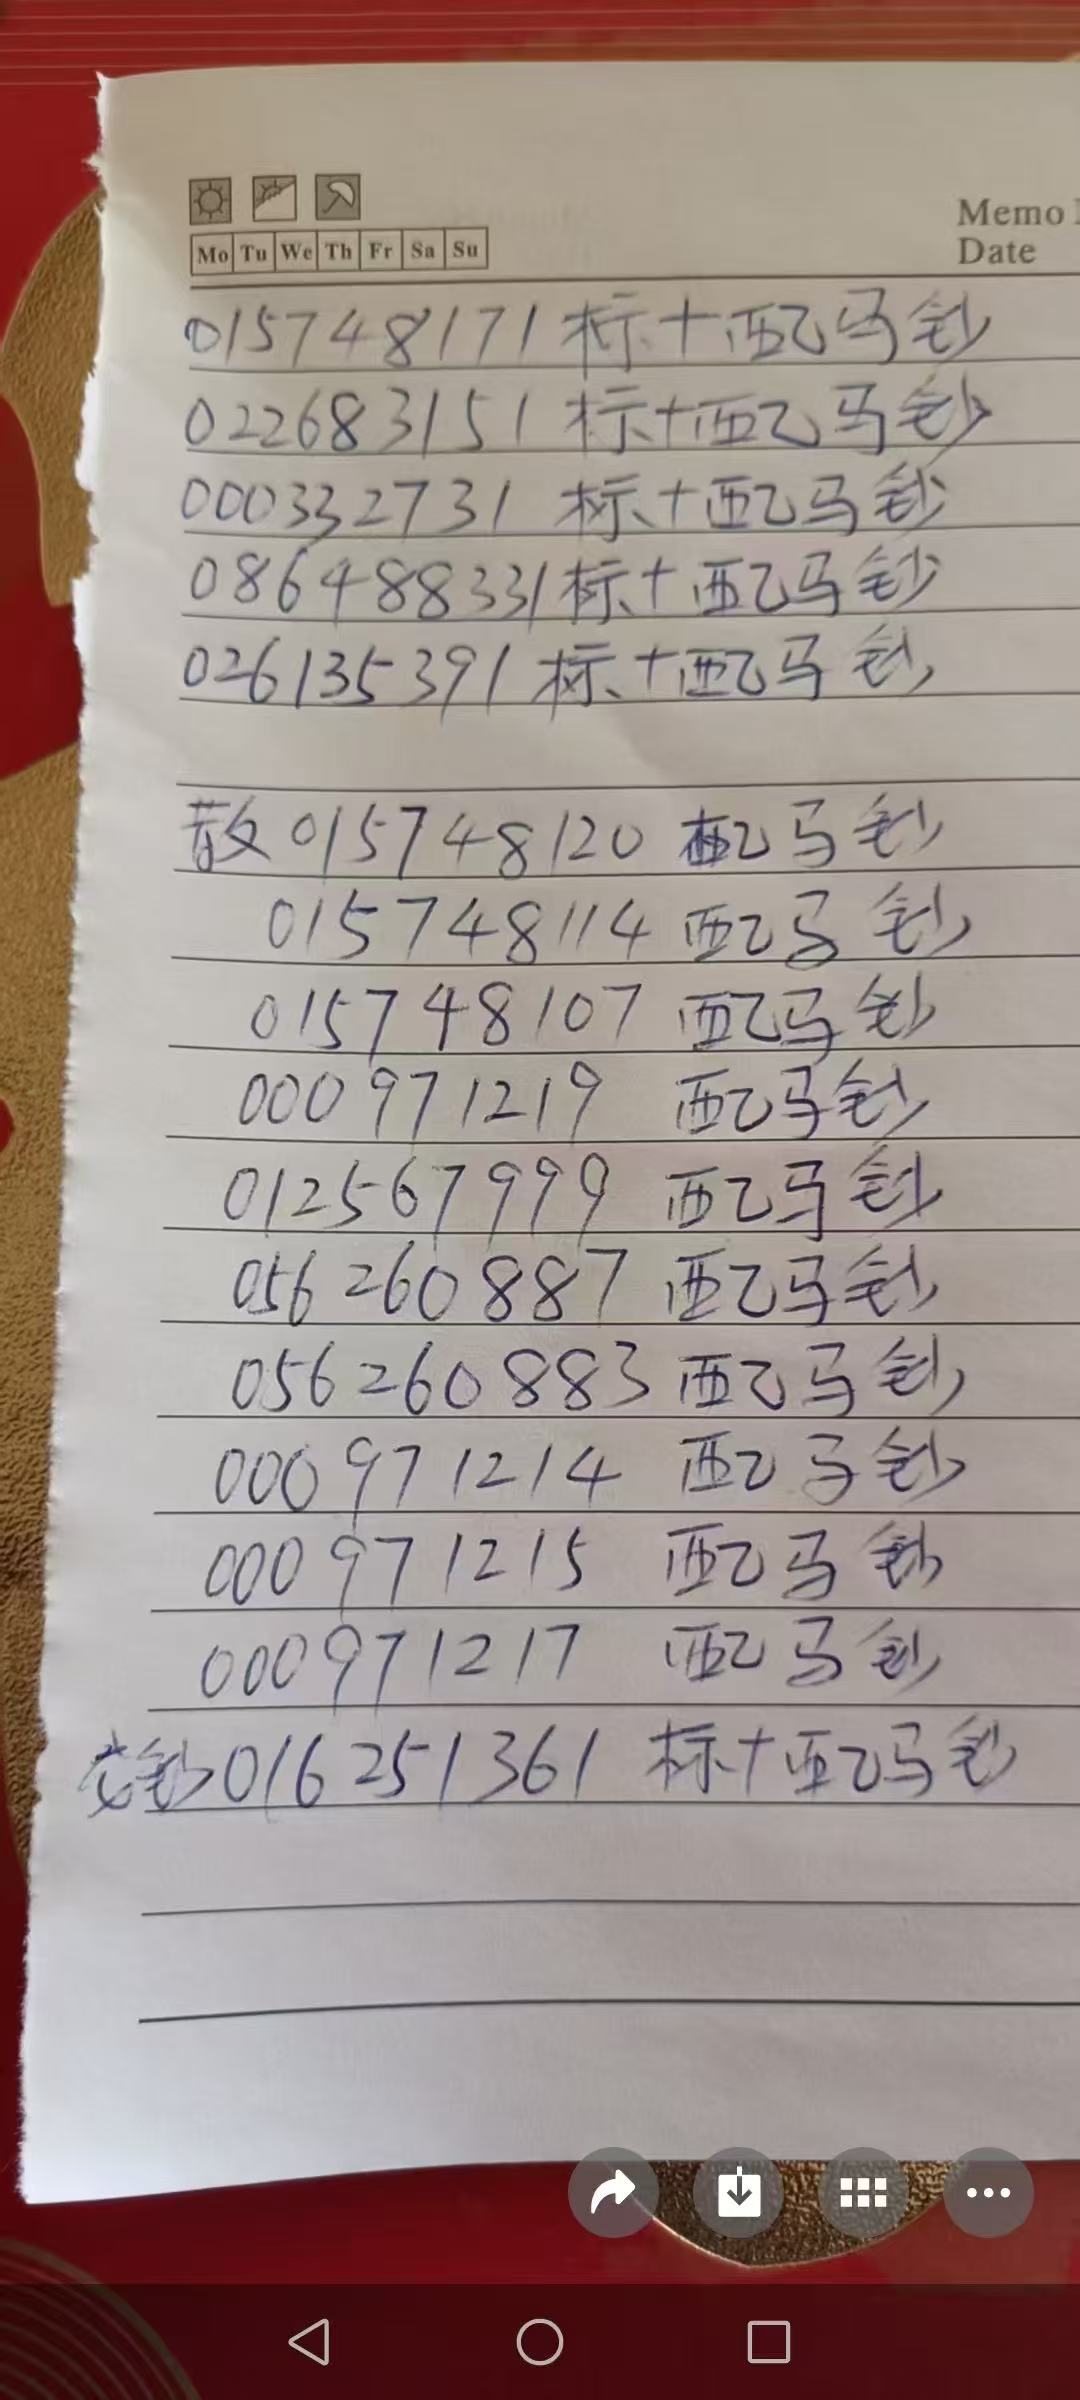 Mo Tu We Th Fr Sa Su
Memo
Date
015748171 标十配马钞
022683151 标十配马钞
000332731 标十配马钞
086488331 标十配马钞
026135391 标十配马钞
散 015748120 配马钞
015748114 配马钞
015748107 配马钞
000971219 配马钞
012567999 配马钞
056260887 配马钞
056260883 配马钞
000971214 配马钞
000971215 配马钞
000971217 配马钞
钞 016251361 标十配马钞